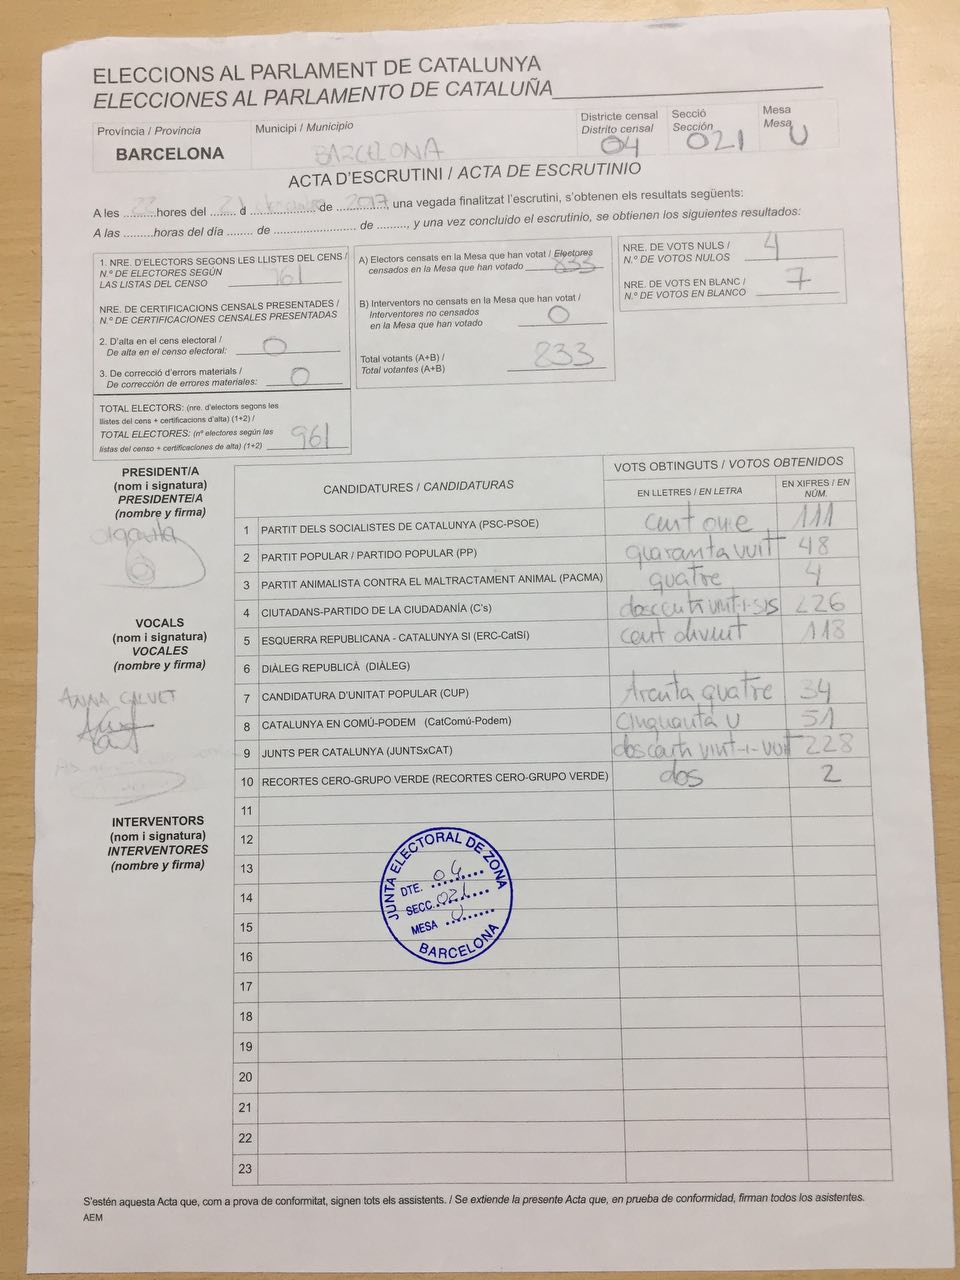 ELECCIONS AL PARLAMENT DE CATALUNYA
ELECCIONES AL PARLAMENTO DE CATALUÑA
Província / Provincia
BARCELONA
Municipi / Municipio
BARCELONA
Districte censal
Distrito censal
04
Secció
Sección
021
Mesa
Mesa
U
ACTA D'ESCRUTINI / ACTA DE ESCRUTINIO
A les 22 hores del 21 d de 2017, una vegada finalitzat l'escrutini, s'obtenen els resultats següents:
A las .........horas del día ........ de ......................... de ........., y una vez concluido el escrutinio, se obtienen los siguientes resultados:
1. NRE. D'ELECTORS SEGONS LES LLISTES DEL CENS /
N.º DE ELECTORES SEGÚN
LAS LISTAS DEL CENSO 961
NRE. DE CERTIFICACIONS CENSALS PRESENTADES /
N.º DE CERTIFICACIONES CENSALES PRESENTADAS
2. D'alta en el cens electoral /
De alta en el censo electoral: 0
3. De correcció d'errors materials /
De corrección de errores materiales: 0
TOTAL ELECTORS: (nre. d'electors segons les
llistes del cens + certificacions d'alta) (1+2) /
TOTAL ELECTORES: (nº electores según las
listas del censo + certificaciones de alta) (1+2) 961
A) Electors censats en la Mesa que han votat / Electores
censados en la Mesa que han votado 833
B) Interventors no censats en la Mesa que han votat /
Interventores no censados
en la Mesa que han votado 0
Total votants (A+B) /
Total votantes (A+B) 833
NRE. DE VOTS NULS /
N.º DE VOTOS NULOS 4
NRE. DE VOTS EN BLANC /
N.º DE VOTOS EN BLANCO 7
PRESIDENT/A
(nom i signatura)
PRESIDENTE/A
(nombre y firma)
VOCALS
(nom i signatura)
VOCALES
(nombre y firma)
ANNA CALVET
INTERVENTORS
(nom i signatura)
INTERVENTORES
(nombre y firma)
CANDIDATURES / CANDIDATURAS
VOTS OBTINGUTS / VOTOS OBTENIDOS
EN LLETRES / EN LETRA
EN XIFRES / EN
NÚM.
1 PARTIT DELS SOCIALISTES DE CATALUNYA (PSC-PSOE) cent onze 111
2 PARTIT POPULAR / PARTIDO POPULAR (PP) quaranta vuit 48
3 PARTIT ANIMALISTA CONTRA EL MALTRACTAMENT ANIMAL (PACMA) quatre 4
4 CIUTADANS-PARTIDO DE LA CIUDADANÍA (C's) doscents vint-i-sis 226
5 ESQUERRA REPUBLICANA - CATALUNYA SI (ERC-CatSI) cent divuit 118
6 DIÀLEG REPUBLICÀ (DIÀLEG)
7 CANDIDATURA D'UNITAT POPULAR (CUP) trenta quatre 34
8 CATALUNYA EN COMÚ-PODEM (CatComú-Podem) cinquanta u 51
9 JUNTS PER CATALUNYA (JUNTSxCAT) doscents vint-i-vuit 228
10 RECORTES CERO-GRUPO VERDE (RECORTES CERO-GRUPO VERDE) dos 2
11
12
13
14
15
16
17
18
19
20
21
22
23
JUNTA ELECTORAL DE ZONA
DTE. 04
SECC. 021
MESA U
BARCELONA
S'estén aquesta Acta que, com a prova de conformitat, signen tots els assistents. / Se extiende la presente Acta que, en prueba de conformidad, firman todos los asistentes.
AEM